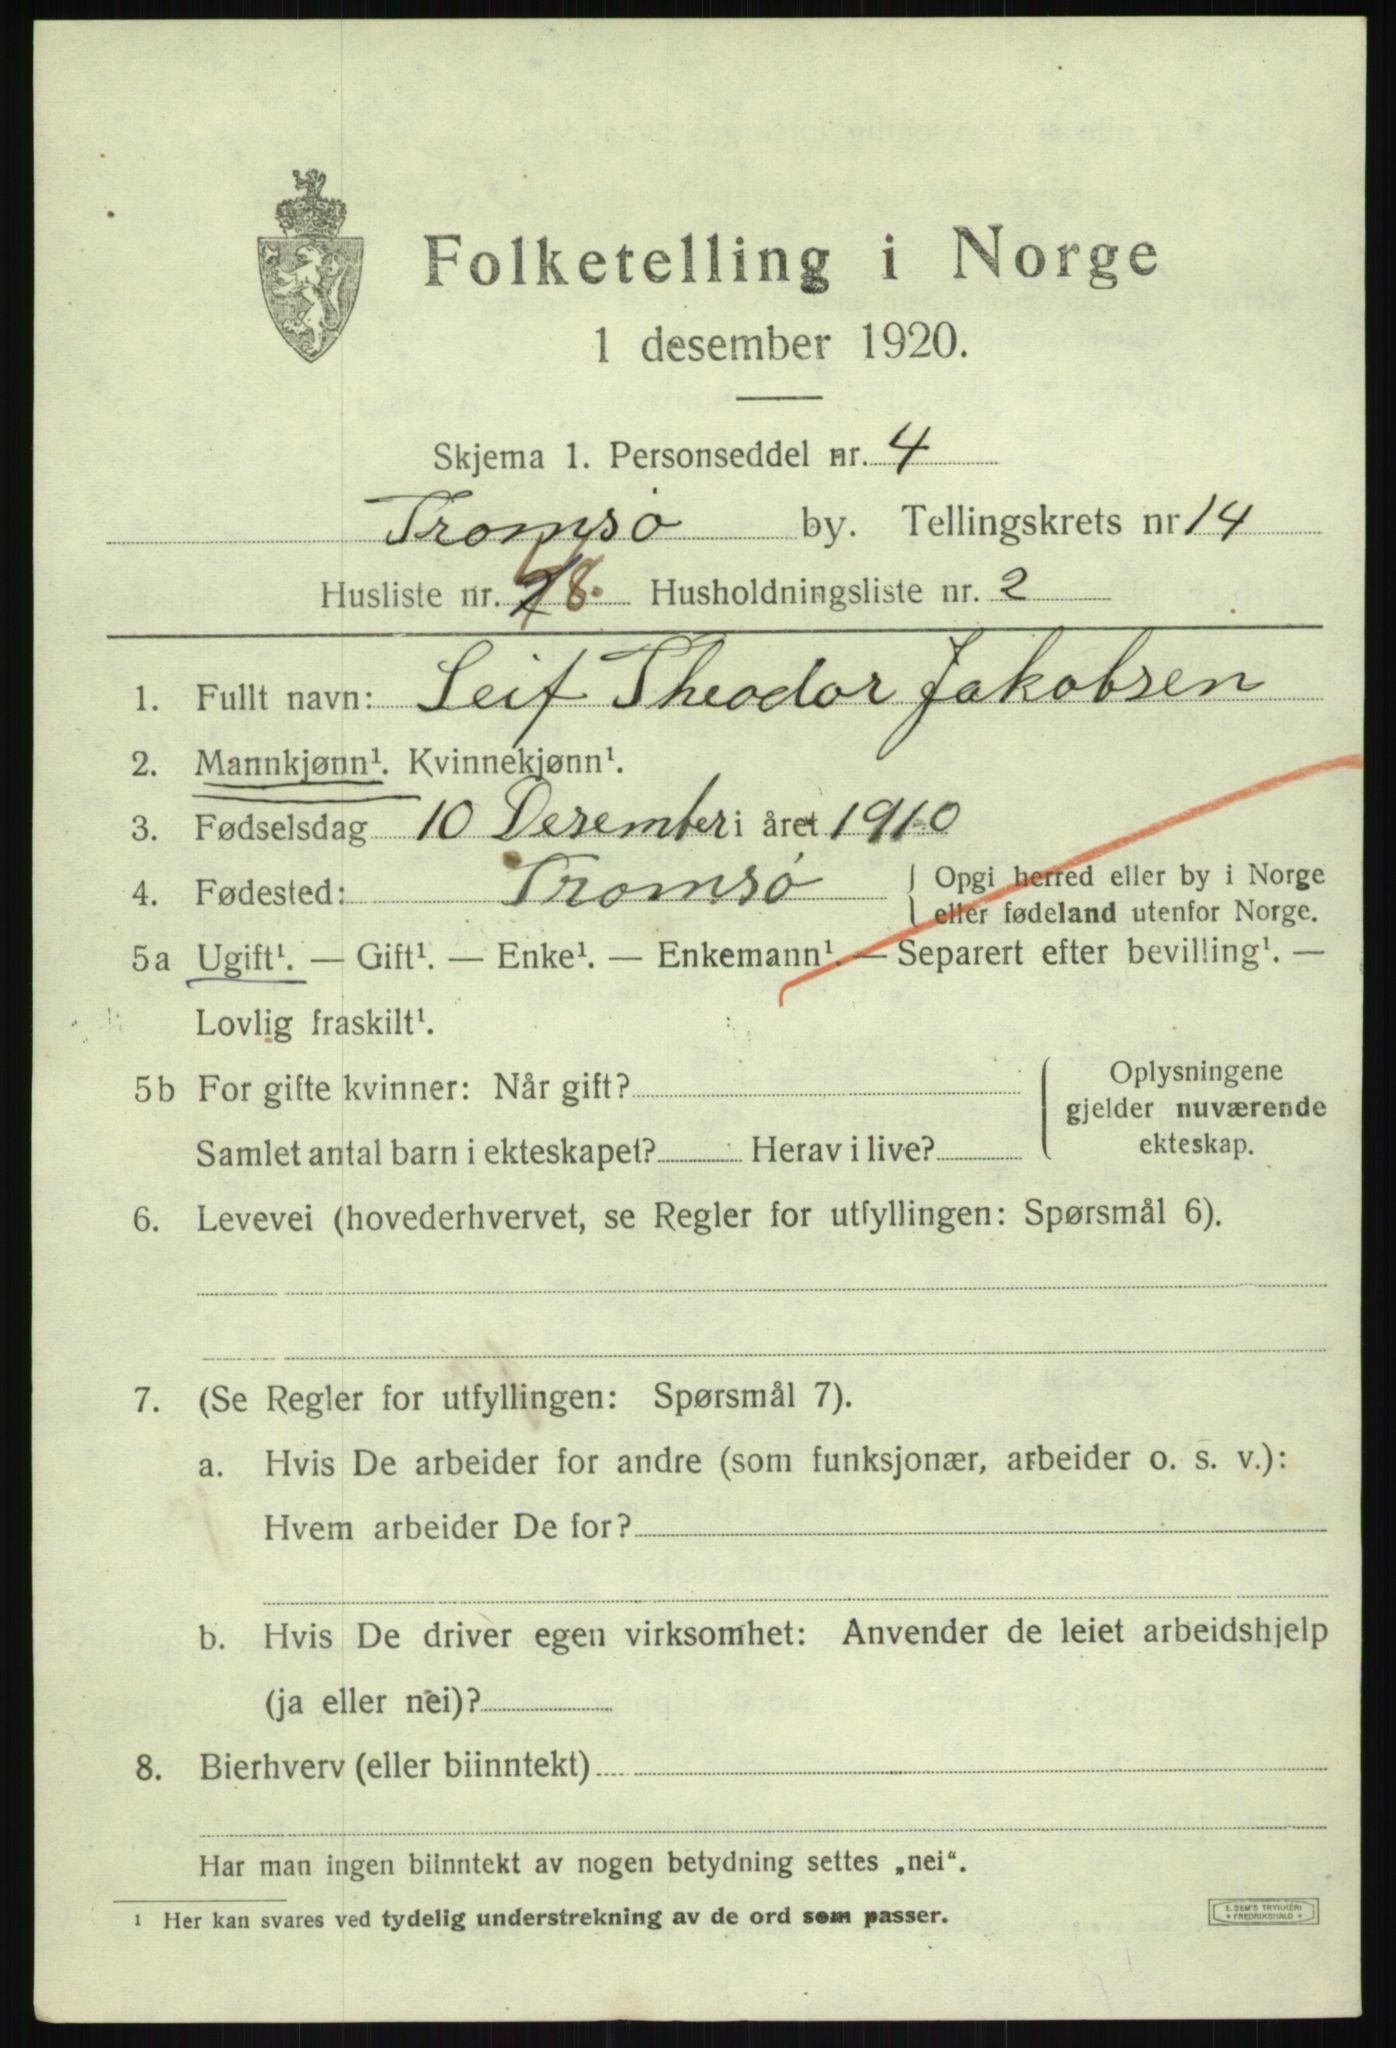 Folketelling i Norge
1 desember 1920.
Skjema 1. Personseddel nr. 4
Tromsø by. Tellingskrets nr 14
Husliste nr. 8. Husholdningsliste nr. 2
1. Fullt navn: Leif Theodor Jakobsen
2. Mannkjønn¹. Kvinnekjønn¹.
3. Fødselsdag 10 Desember i året 1910
4. Fødested: Tromsø { Opgi herred eller by i Norge
eller fødeland utenfor Norge.
5a Ugift¹. — Gift¹. — Enke¹. — Enkemann¹. — Separert efter bevilling¹. —
Lovlig fraskilt¹.
5b For gifte kvinner: Når gift?
Samlet antal barn i ekteskapet? Herav i live?
{ Oplysningene
gjelder nuværende
ekteskap.
6. Levevei (hovederhvervet, se Regler for utfyllingen: Spørsmål 6).
7. (Se Regler for utfyllingen: Spørsmål 7).
a. Hvis De arbeider for andre (som funksjonær, arbeider o. s. v.):
Hvem arbeider De for?
b. Hvis De driver egen virksomhet: Anvender de leiet arbeidshjelp
(ja eller nei)?
8. Bierhverv (eller biinntekt)
Har man ingen biinntekt av nogen betydning settes „nei“.
¹ Her kan svares ved tydelig understrekning av de ord som passer.
E. SEM'S TRYKKERI
FREDRIKSHALD